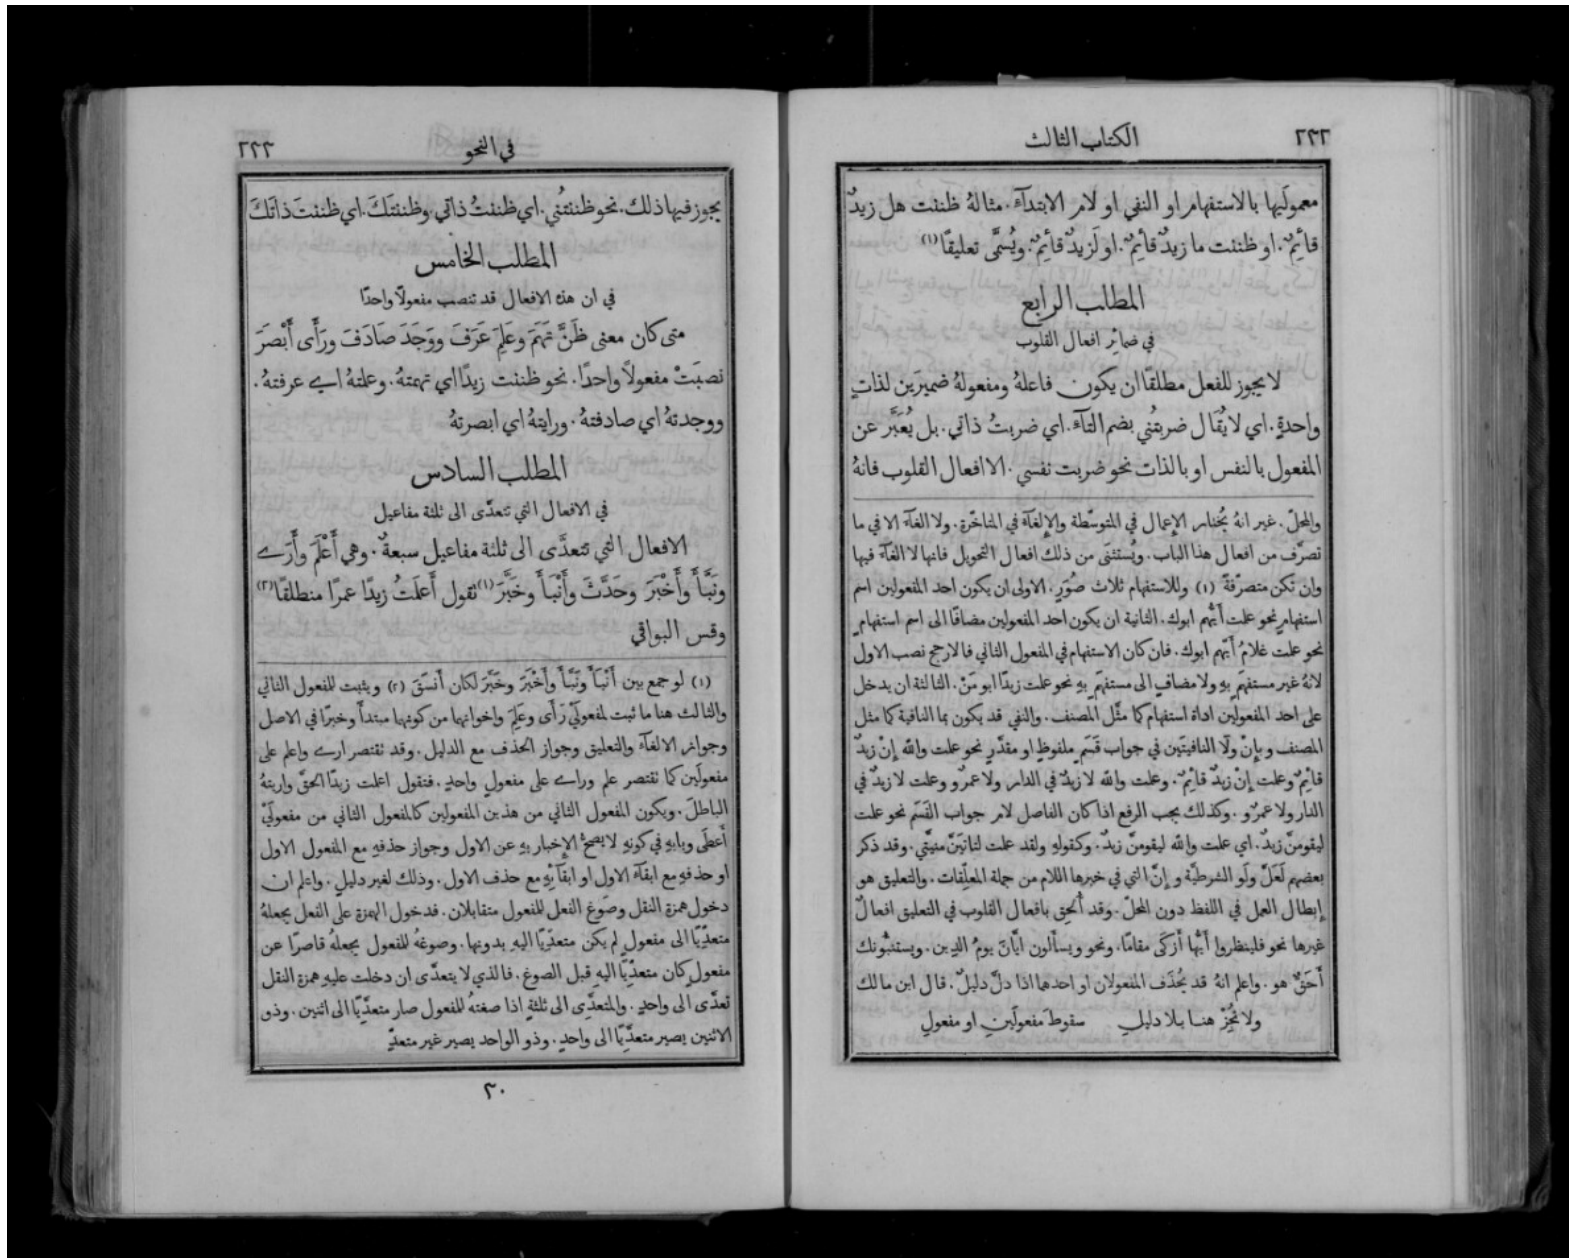 ٢٣٢
الكتاب الثالث
معمولَيها بالاستفهام او النفي او لام الابتدآء. مثالهُ ظننت هل زيدٌ
قائِمٌ. او ظننت ما زيدٌ قائِمٌ. او لَزيدٌ قائِمٌ. ويُسمَّى تعليقًا (١)
المطلب الرابع
في ضمائِر افعال القلوب
لا يجوز للفعل مطلقًا ان يكون فاعلهُ ومفعولهُ ضميرَين لذاتٍ
واحدةٍ. اي لا يُقال ضربتُني بضم التآء. اي ضربتُ ذاتي. بل يُعبَّر عن
المفعول بالنفس او بالذات نحو ضربت نفسي. الا افعال القلوب فانهُ
والمحلّ. غير انهُ يُختار الإعمال في المتوسّطة والإلغآء في المتاخّرة. ولا الغآء الا في ما
تصرَّف من افعال هذا الباب. ويُستثنَى من ذلك افعال التحويل فانها لا الغآء فيها
وان تكن متصرّفةً (١) وللاستفهام ثلاث صُوَرٍ. الاولى ان يكون احد المفعولين اسم
استفهامٍ نحو علمت أَيُّهم ابوك. الثانية ان يكون احد المفعولين مضافًا الى اسم استفهامٍ
نحو علمت غلامُ أَيِّهم ابوك. فان كان الاستفهام في المفعول الثاني فالارجح نصب الاول
لانهُ غير مستفهَمٍ بهِ ولا مضافٍ الى مستفهَمٍ بهِ نحو علمت زيدًا ابو مَنْ. الثالثة ان يدخل
على احد المفعولَين اداة استفهام كما مثّل المصنف. والنفي قد يكون بما النافية كما مثل
المصنف وبإِنْ ولَا النافيتَين في جواب قَسَمٍ ملفوظٍ او مقدَّرٍ نحو علمت والله إِنْ زيدٌ
قائِمٌ وعلمت إِنْ زيدٌ قائِمٌ. وعلمت والله لا زيدٌ في الدار ولا عمرٌو وعلمت لا زيدٌ في
الدار ولا عمرٌو. وكذلك يجب الرفع اذا كان الفاصل لام جواب القَسَم نحو علمت
ليقومنَّ زيدٌ. اي علمت والله ليقومنَّ زيدٌ. وكقولهِ ولقد علمت لتاتيَنَّ منيَّتي. وقد ذكر
بعضهم لَعَلَّ ولَو الشرطيَّة وإِنَّ التي في خبرها اللام من جملة المعلِّقات. والتعليق هو
إبطال العمل في اللفظ دون المحلّ. وقد أُلحِق بافعال القلوب في التعليق افعالٌ
غيرها نحو فلينظروا أَيُّها أَزكَى مقامًا. ونحو ويسألون ايَّانَ يومُ الدين. ويستنبئُونك
أَحَقٌّ هو. واعلم انهُ قد يُحذَف المفعولان او احدهما اذا دلَّ دليلٌ. قال ابن مالك
ولا تُجِزْ هنا بلا دليلِ سقوطَ مفعولَينِ او مفعولِ
في النحو
٢٣٣
يجوز فيها ذلك. نحو ظننتُني. اي ظننتُ ذاتي. وظننتَكَ. اي ظننتَ ذاتَكَ
المطلب الخامس
في ان هذه الافعال قد تنصب مفعولًا واحدًا
متى كان معنى ظَنَّ تَهَمَ وعَلِمَ عَرَفَ ووَجَدَ صَادَفَ ورَأَى أَبْصَرَ
نصبَتْ مفعولًا واحدًا. نحو ظننت زيدًا اي تهمتهُ. وعلمتهُ اي عرفتهُ.
ووجدتهُ اي صادفتهُ. ورايتهُ اي ابصرتهُ
المطلب السادس
في الافعال التي تتعدَّى الى ثلثة مفاعيل
الافعال التي تتعدَّى الى ثلثة مفاعيل سبعةٌ. وهي أَعْلَمَ وأَرَى
ونَبَّأَ وأَخْبَرَ وحَدَّثَ وأَنْبَأَ وخَبَّرَ (١) تقول أَعلَمتُ زيدًا عمرًا منطلقًا (٢)
وقس البواقي
(١) لو جمع بين أَنْبَأَ ونَبَّأَ وأَخْبَرَ وخَبَّرَ لكان أَنسَقَ (٢) ويثبت للمفعول الثاني
والثالث هنا ما ثبت لمفعولَيْ رَأَى وعَلِمَ واخواتهما من كونهما مبتدأً وخبرًا في الاصل
وجواز الالغآء والتعليق وجواز الحذف مع الدليل. وقد تقتصر ارى واعلم على
مفعولَين كما تقتصر علم وراى على مفعولٍ واحدٍ. فتقول اعلمت زيدًا الحقَّ واريتهُ
الباطلَ. ويكون المفعول الثاني من هذين المفعولين كالمفعول الثاني من مفعولَيْ
أَعطَى وبابهِ في كونهِ لا يصحُّ الإخبار بهِ عن الاول وجواز حذفهِ مع المفعول الاول
او حذفهِ مع ابقآء الاول او ابقآئِهِ مع حذف الاول. وذلك لغير دليلٍ. واعلم ان
دخول همزة النقل وصَوغ الفعل للمفعول متقابلان. فدخول الهمزة على الفعل يجعلهُ
متعدِّيًا الى مفعولٍ لم يكن متعدِّيًا اليهِ بدونها. وصوغهُ للمفعول يجعلهُ قاصرًا عن
مفعولٍ كان متعدِّيًا اليهِ قبل الصوغ. فالذي لا يتعدَّى ان دخلت عليهِ همزة النقل
تعدَّى الى واحدٍ. والمتعدِّى الى ثلثةٍ اذا صغتهُ للمفعول صار متعدِّيًا الى اثنين. وذو
الاثنين يصير متعدِّيًا الى واحدٍ. وذو الواحد يصير غير متعدٍّ
٣٠